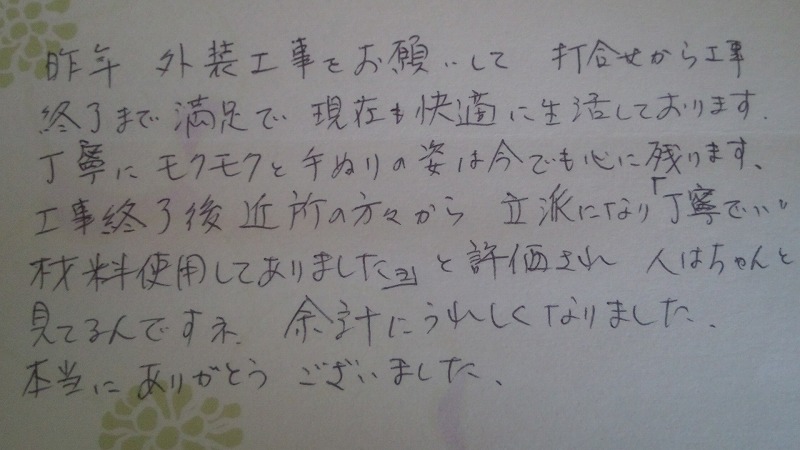 昨年 外装工事をお願いして 打合せから工事
終了まで満足で 現在も快適に生活しております.
丁寧にモクモクと手ぬりの姿は今でも心に残ります、
工事終了後近所の方々から 立派になり「丁寧でいい
材料使用してありましたネ」と評価され 人はちゃんと
見てるんですネ. 余計にうれしくなりました.
本当にありがとう ございました、